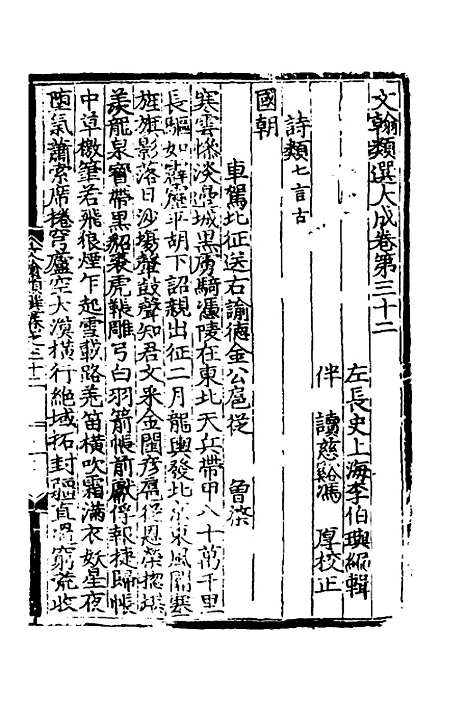 文翰類選大成卷第三十二
左長史上海李伯璵編輯
伴讀慈谿馮厚校正
詩類七言古
國朝
車駕北征送右諭德金公扈從 魯棨
寒雲慘淡邊城黑虜騎憑陵在東北天兵帶甲八十萬千里
長驅如霹靂平胡下詔親出征二月龍輿發北京東風開塞
旌旗影落日沙場聲鼓聲知君文采金閨彥扈從恩榮
羔龍泉寶帶黑貂裘虎韔雕弓白羽箭帳前獻俘報捷歸帳
中草檄筆若飛狼煙乍起雪載路羌笛橫吹霜滿衣妖星夜
墮氣蕭索席捲穹廬空大漠橫行絕域拓封疆直